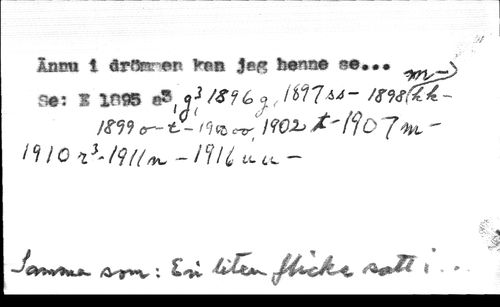 Ännu i drömmen kan jag henne se...
m-)
Se: E 1895 s³, g³, 1896 g, 1897 ss - 1898 (kk -
1899 o - t - 1900 oo, 1902 t - 1907 m -
1910 r³ - 1911 n - 1916 u u -
Samma som: En liten flicka satt i...